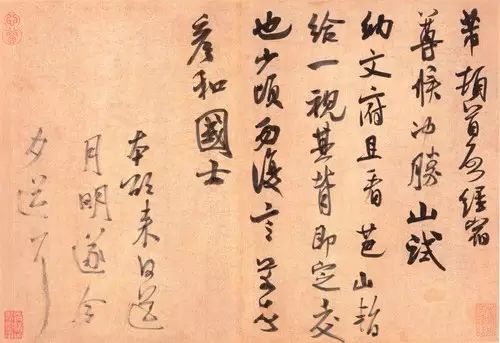 芾頓首啓經宿
尊候沖勝山試
納文府且看芭山暫
給一視其背即定交
也少頃勿復言芾頓首
彥和國士
本欲來日送
月明遂今
夕送耳